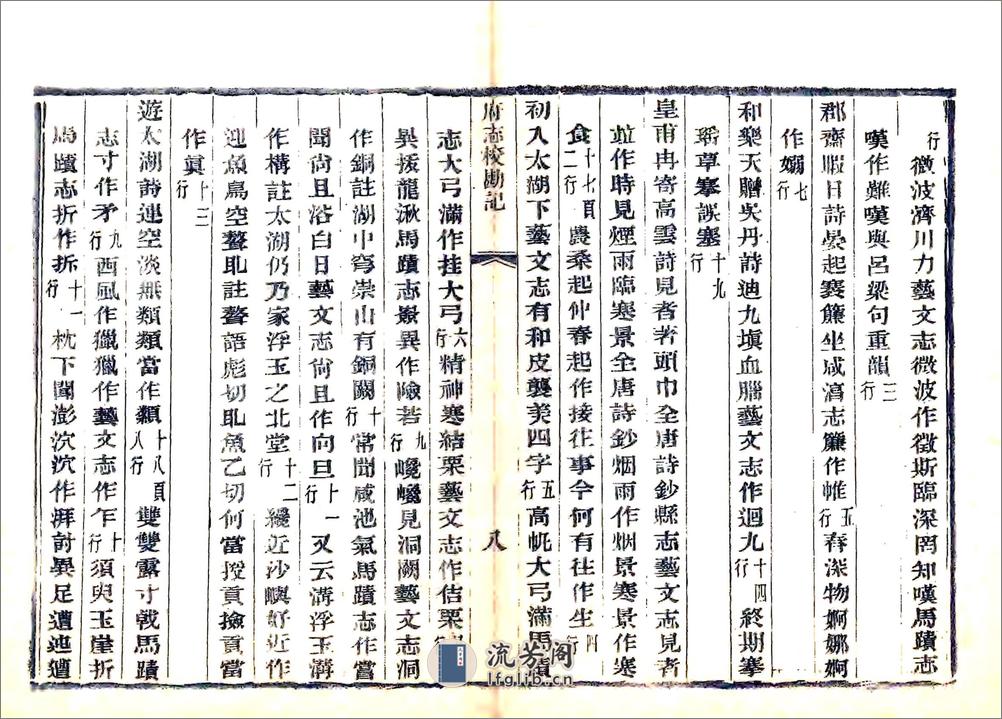 行徵波濟川力藝文志微波作徵斯臨深罔知嘆馬蹟志
嘆作難嘆與呂梁句重韻三行
郡齋暇日詩晏起褰簾坐咸瀉志簾作帷五行春深物婀娜婀
作嫋七行
和樂天贈吳丹詩迪九塡血腦藝文志作迴九十四行終期搴
瑤草搴誤塞十九行
皇甫冉寄高雲詩見者著頭巾全唐詩鈔縣志藝文志見者
竝作時見煙雨臨寒景全唐詩鈔烟雨作烟景寒景作寒
食十七頁二行農桑起仲春起作接往事今何有往作生四行
初入太湖下藝文志有和皮襲美四字五行高帆大弓滿馬蹟
府志校勘記
八
志大弓滿作挂大弓六行精神寒結栗藝文志作佶栗
異援龍湫馬蹟志嚴異作險若九行巉巉見洞闕藝文志洞
作銅註湖中穹崇山有銅闕十行常聞咸池氣馬蹟志作嘗
聞尚且浴白日藝文志尙且作向旦十一行又云濤浮玉濤
作構註太湖仍乃家浮玉之北堂十二行纔近沙嶼好近作
迎魚鳥空聱耴註聱語彪切耴魚乙切何當授眞撿眞當
作眞十三行
遊太湖詩連空淡無纇纇當作纇十八頁八行雙雙露寸戟馬蹟
志寸作矛九行西風作獵獵作藝文志作乍十行須臾玉崖折
馬蹟志折作拆十一行枕下聞澎㳅㳅作湃討異足遭迍遭
流芳阁
lfglib.cn